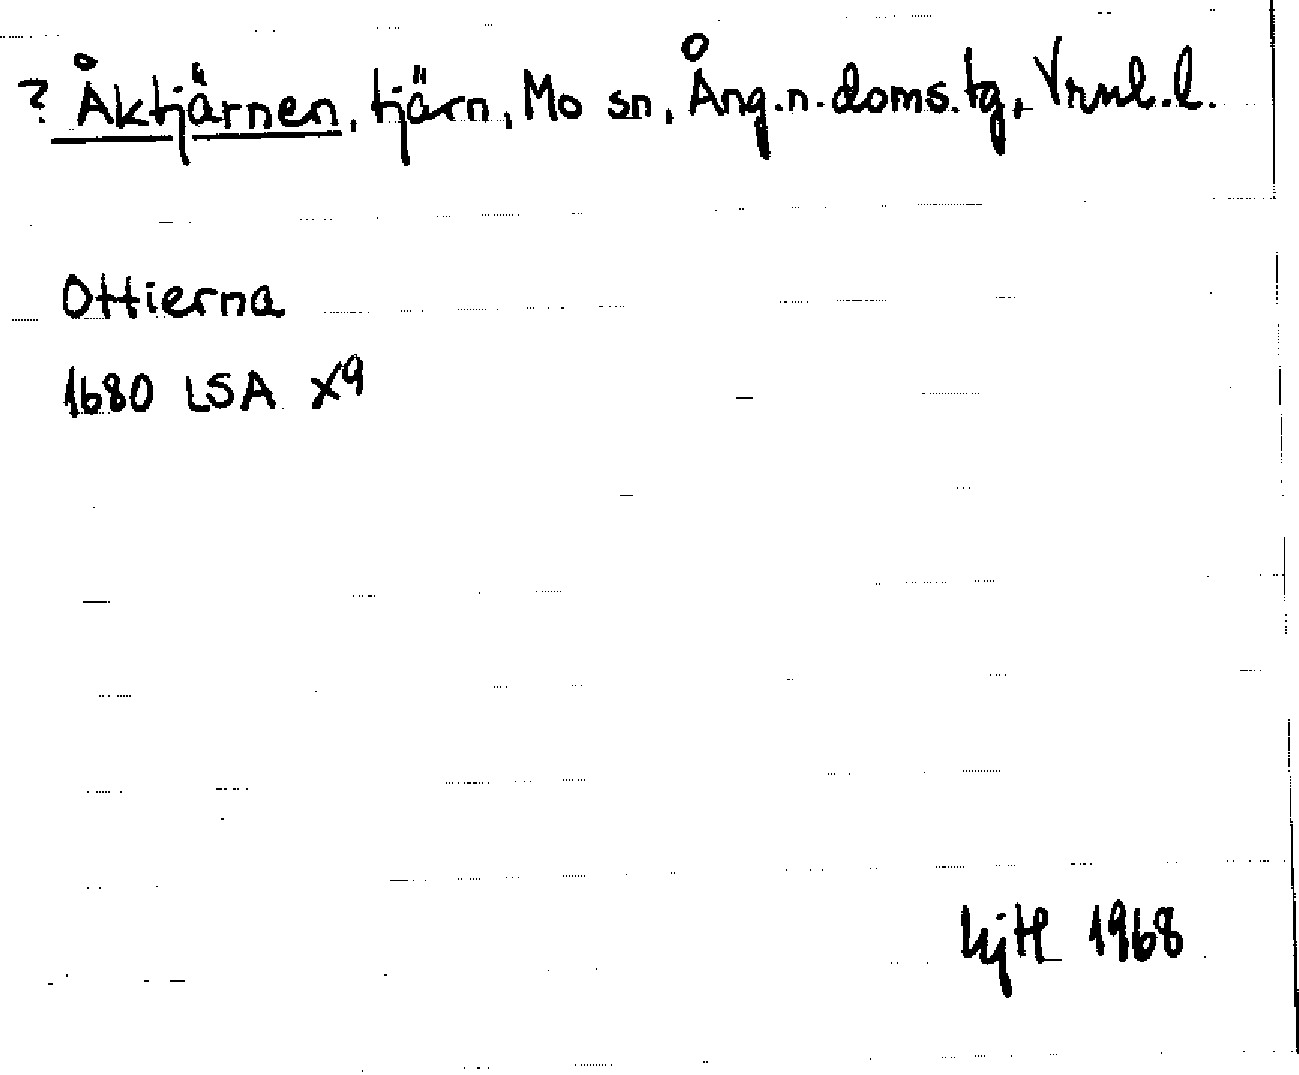 ? Åktjärnen, tjärn, Mo sn, Ång.n.doms.tg, Vrml.l.
Ottierna
1680 LSA X9
1968